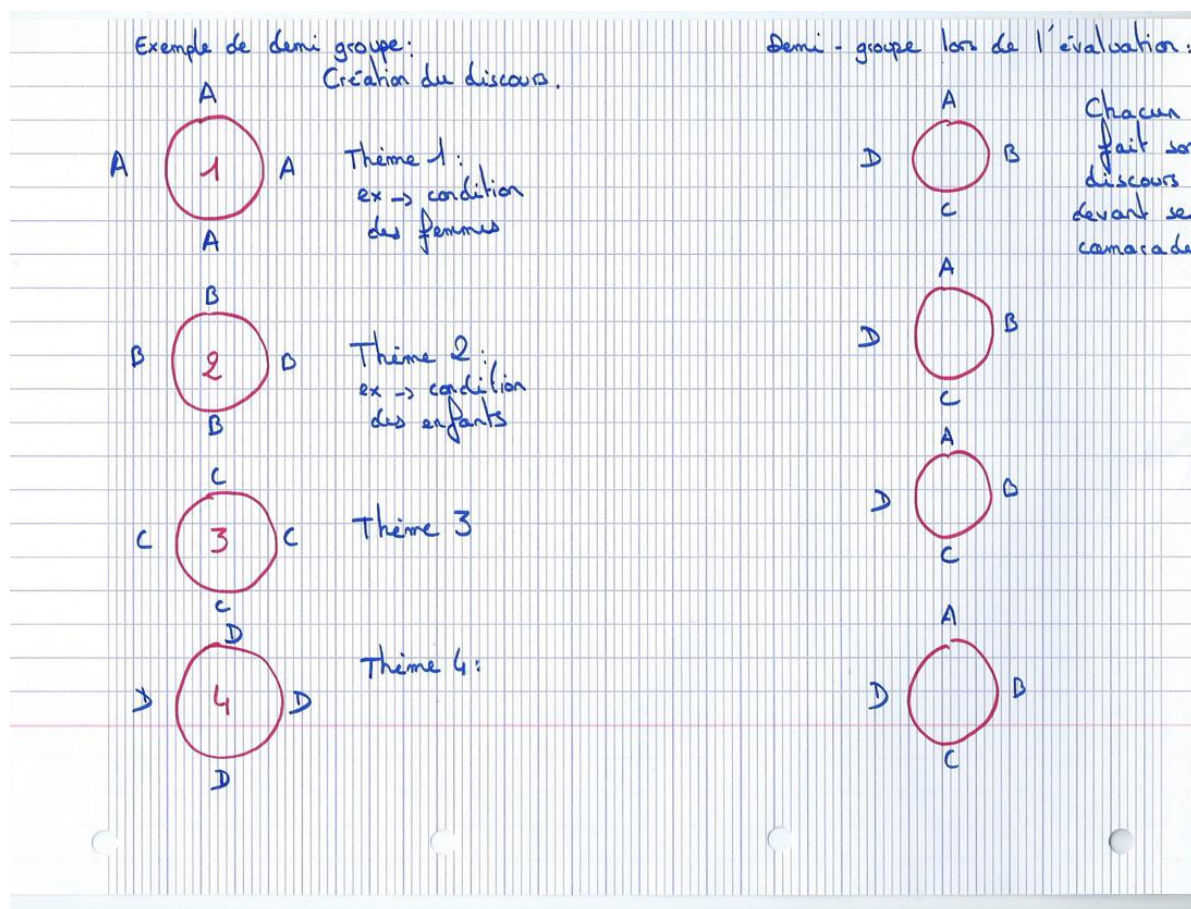 Exemple de demi groupe:
Création du discours.
A
A 1 A
A
Thème 1:
ex -> condition
des femmes
B
B 2 B
B
Thème 2:
ex -> condition
des enfants
C
C 3 C
C
Thème 3
D
D 4 D
D
Thème 4:
Demi-groupe lors de l'évaluation:
A
D B
C
Chacun
fait so
discours
devant se
camarade
A
D B
C
A
D B
C
A
D B
C